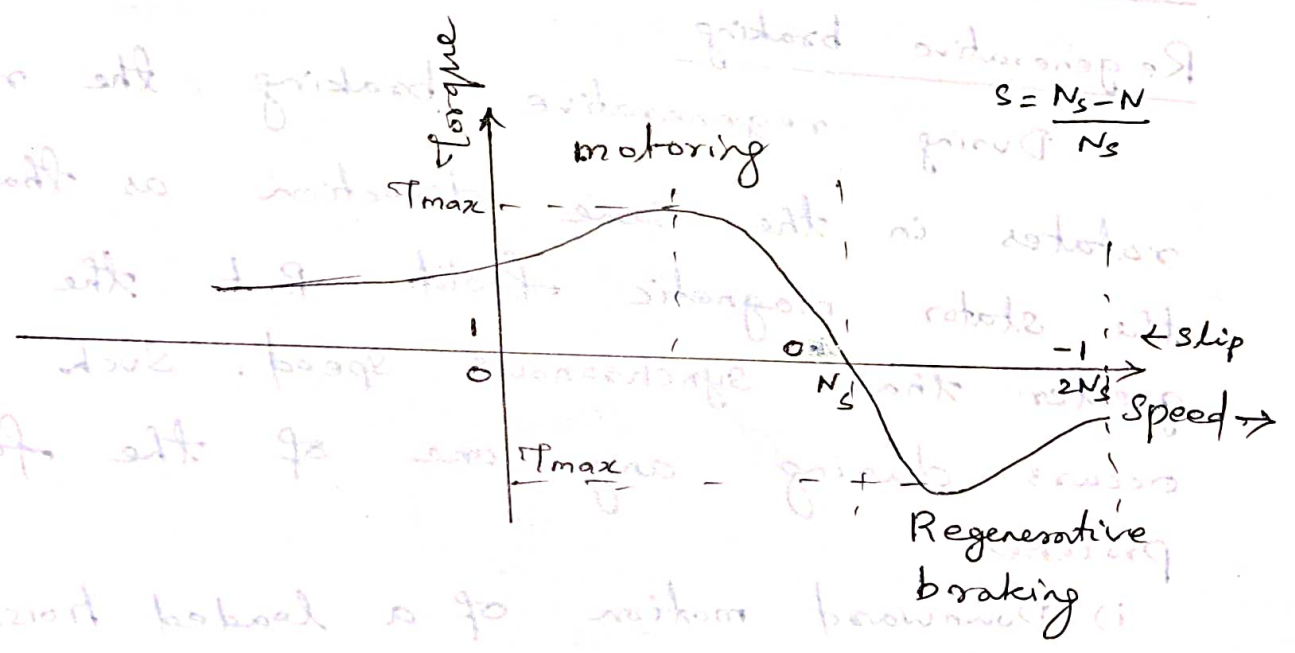 Torque
S = Ns - N
Ns
motoring
Tmax
1
0
0
Ns
-1
2Ns
← slip
Speed →
Tmax
Regenerative
braking